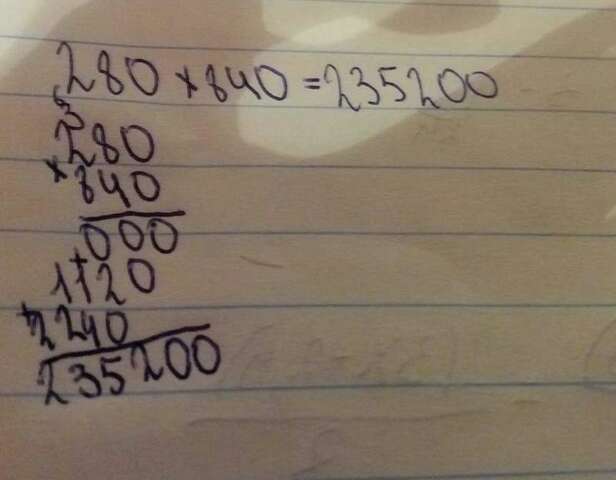 280 × 840 = 235200
6
3
280
× 840
000
+
1120
+ 2240
235200